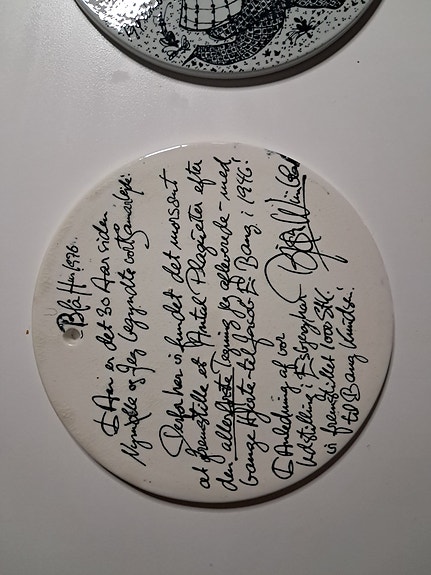 1976.
I Aar er det 30 Aar siden
Nymølle og Jeg begyndte vort Samarbejde.
Derfor har vi fundet det morsomt
at fremstille et Antal Plagietter efter
den allerførste Tegning jeg - med
til Jacob E. Bang i 1946.
I Anledning af vor
Udstilling i
vi fremstillet 1000 Stk.
til Bang
Bjørn Wiinblad